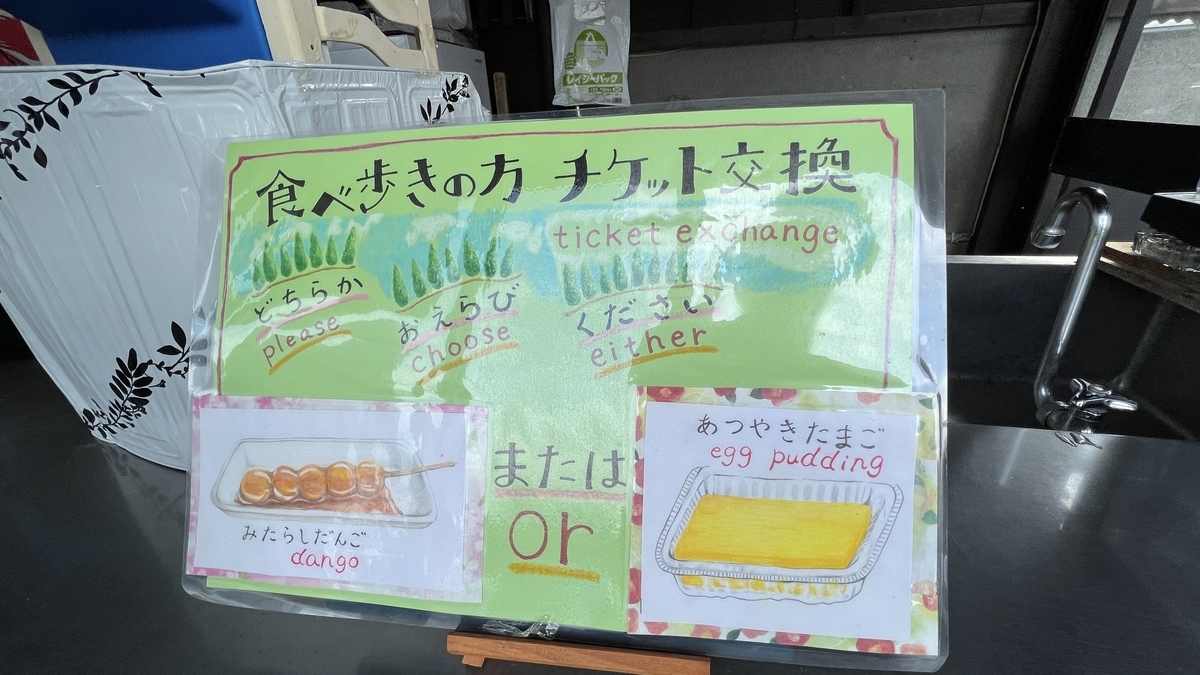 レイジーバック
食べ歩きの方 チケット交換
ticket exchange
どちらか おえらび ください
please choose either
みたらしだんご
dango
または
or
あつやきたまご
egg pudding